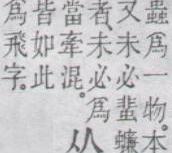 蟲爲一物。本
又未必蜚蠊
者未必爲
當牽混。
从
皆如此
爲飛字。